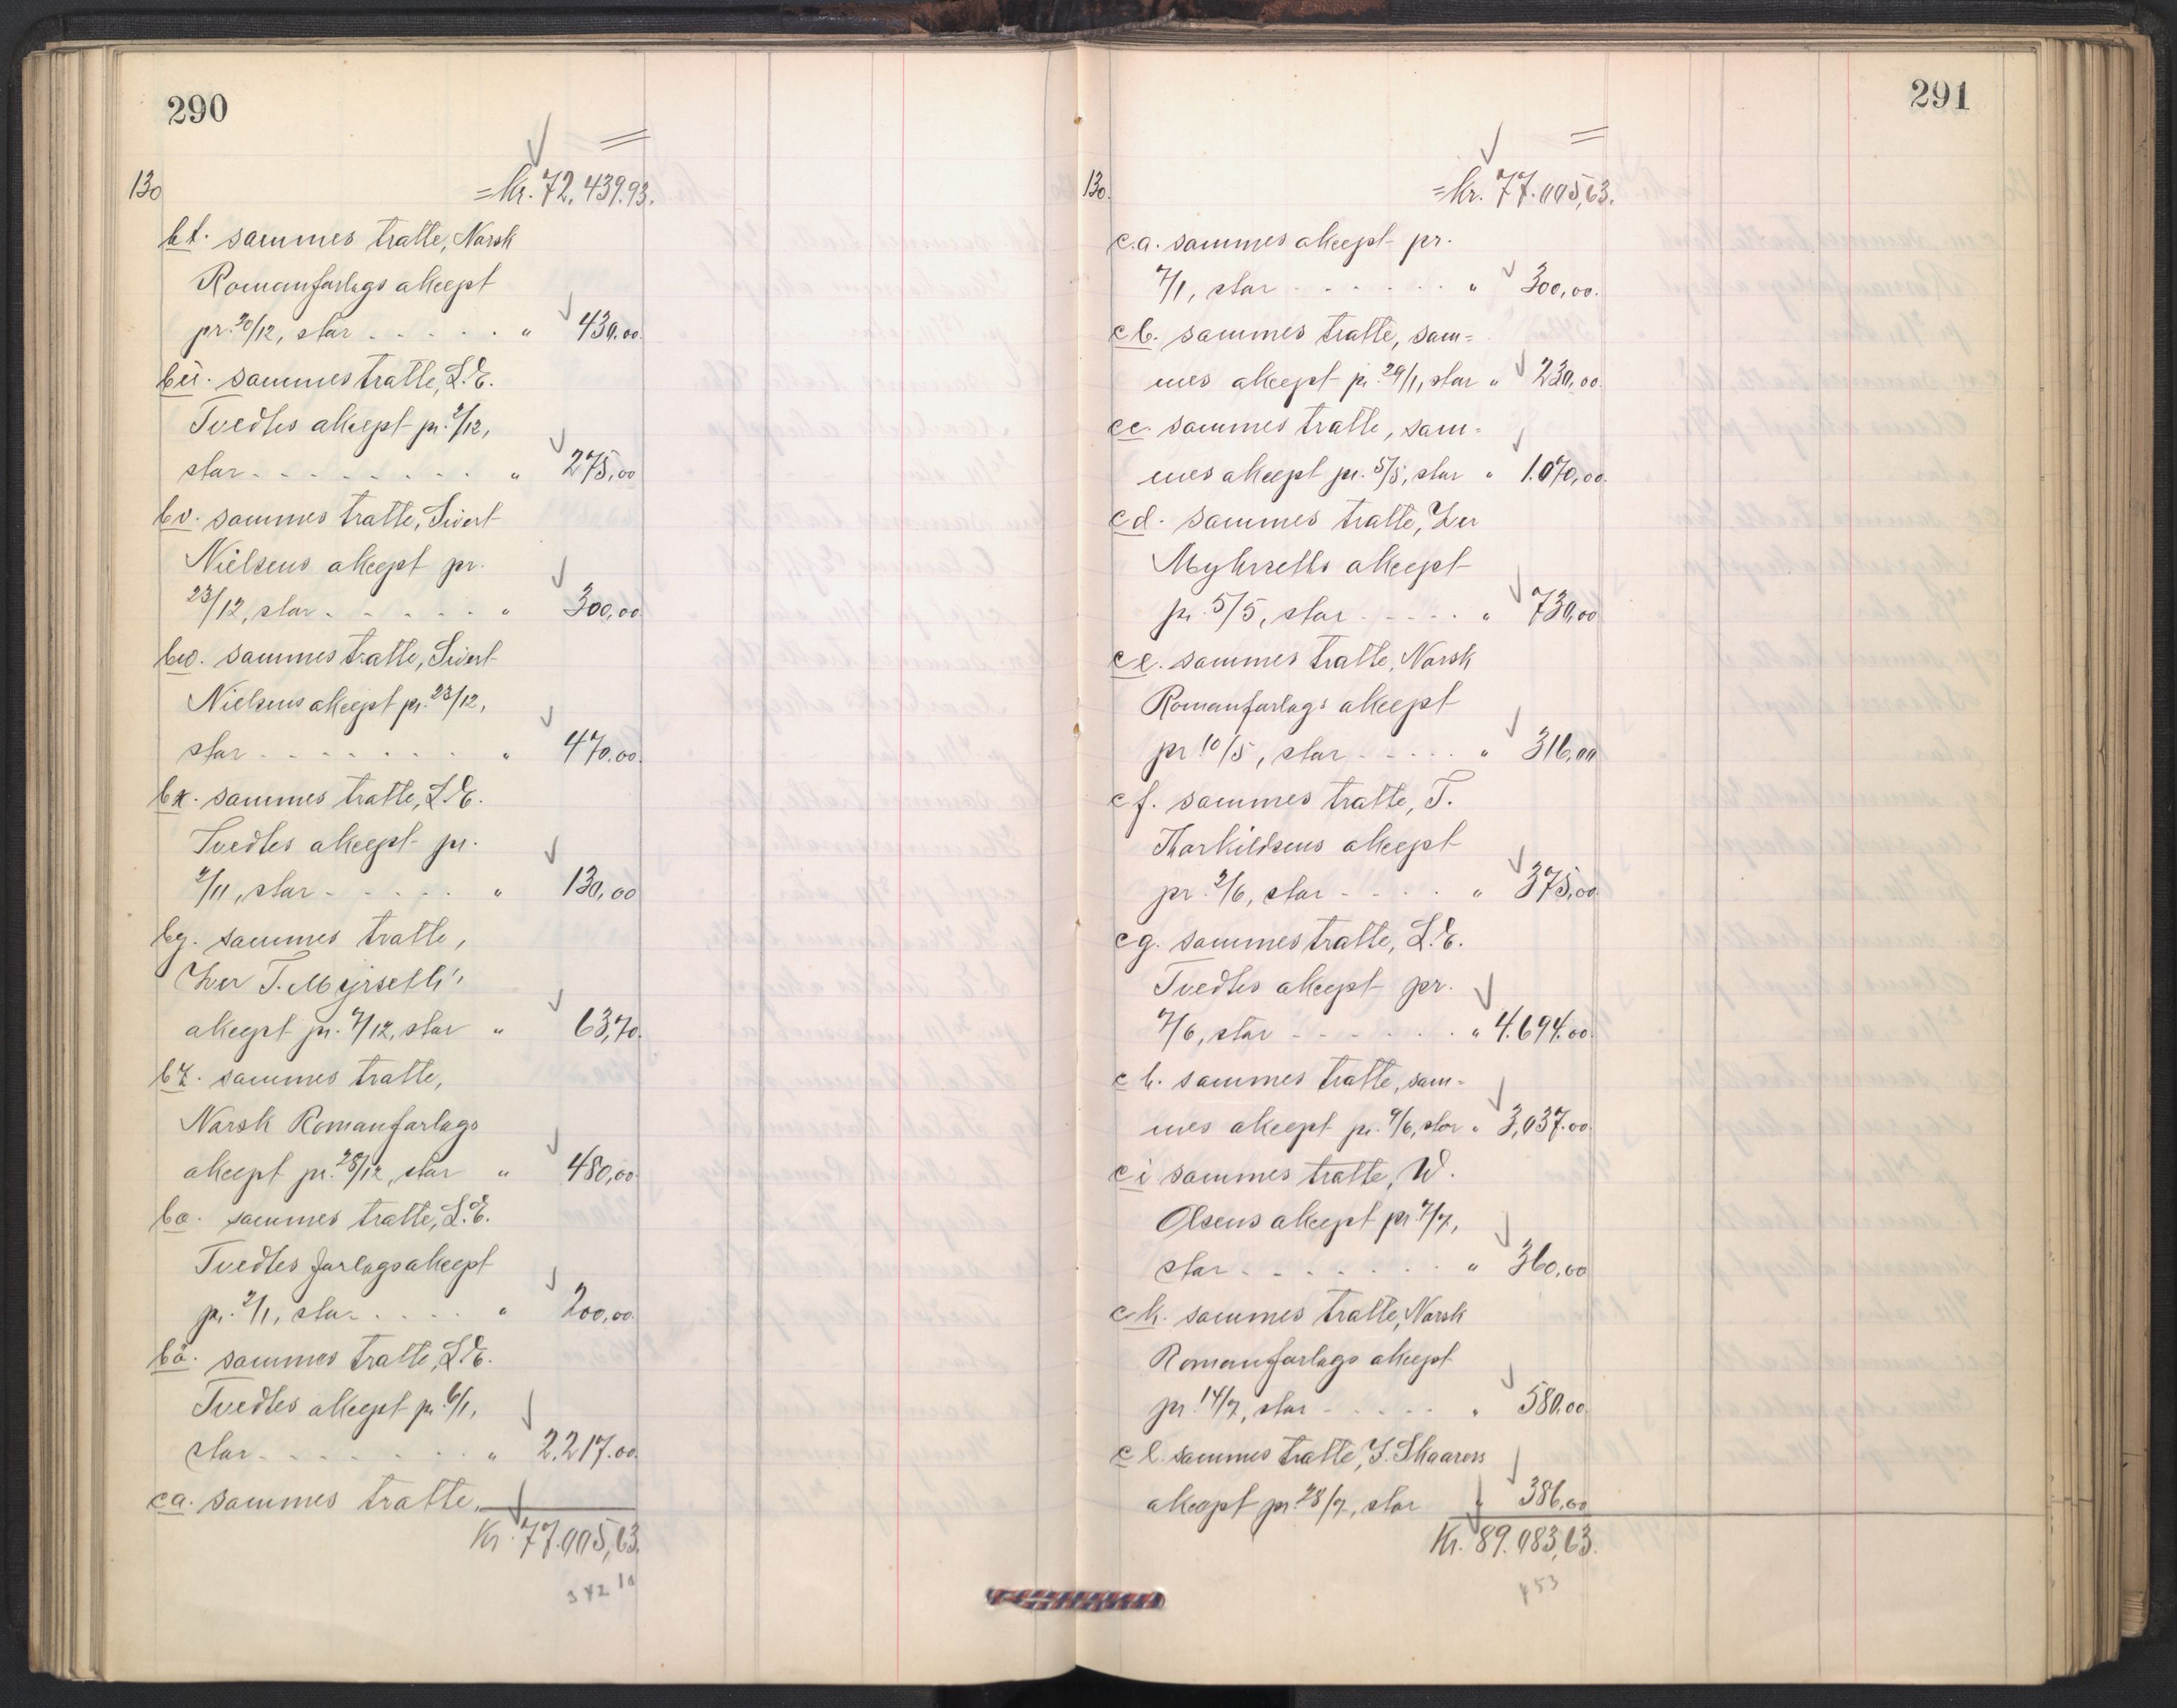 290
130
= Kr. 72.439.93.
bt. sammes tratte, Norsk
Romanforlags akcept
pr. 20/12, stor - - - - - " 430.00
bu. sammes tratte, L. E.
Tvedtes akcept pr. 2/12,
stor - - - - - - - - " 275,00
bv. sammes tratte, Sivert
Nielsens akcept pr.
23/12, stor - - - - - - " 300,00
bw. sammes tratte, Sivert
Nielsens akcept pr. 23/12,
stor - - - - - - - " 470.00.
bx. sammes tratte, L. E.
Tvedtes akcept pr.
2/11, stor - - - - - " 130,00
by. sammes tratte,
Iver T. Myrseth's
akcept pr. 7/12, stor " 63,70.
bz. sammes tratte,
Norsk Romanforlags
akcept pr. 28/12, stor " 480,00
bø. sammes tratte, L. E.
Tvedtes forlags akcept
pr. 2/1, stor - - - - " 200,00.
bå. sammes tratte, L. E.
Tvedtes akcept pr. 6/1,
stor - - - - - - - - " 2.217.00.
ca. sammes tratte,
Kr. 77.005,63.
291
130.
= Kr. 77.005,63.
c.a. sammes akcept pr.
7/1, stor - - - - - - " 300,00.
cb. sammes tratte, sam=
mes akcept pr. 29/1, stor " 230,00.
cc. sammes tratte, sam=
mes akcept pr. 5/5, stor " 1.070,00.
cd. sammes tratte, Iver
Myhrseths akcept
pr. 5/5, stor - - - - - " 730,00
ce. sammes tratte, Norsk
Romanforlags akcept
pr. 10/5, stor - - - - - " 316,00
cf. sammes tratte, T.
Thorkildsens akcept
pr. 2/6, stor - - - - " 375,00
cg. sammes tratte, L. E.
Tvedtes akcept pr.
7/6, stor - - - - - - " 4.694.00.
ch. sammes tratte, sam=
mes akcept pr. 9/6, stor " 3,037.00.
ci sammes tratte, W.
Olsens akcept pr. 7/7,
stor - - - - - - - " 360,00
ck. sammes tratte, Norsk
Romanforlags akcept
pr. 14/7, stor - - - - - " 580.00.
cl. sammes tratte, J. Skaarers
akcept pr. 28/7, stor " 386,00
Kr. 89.083,63.